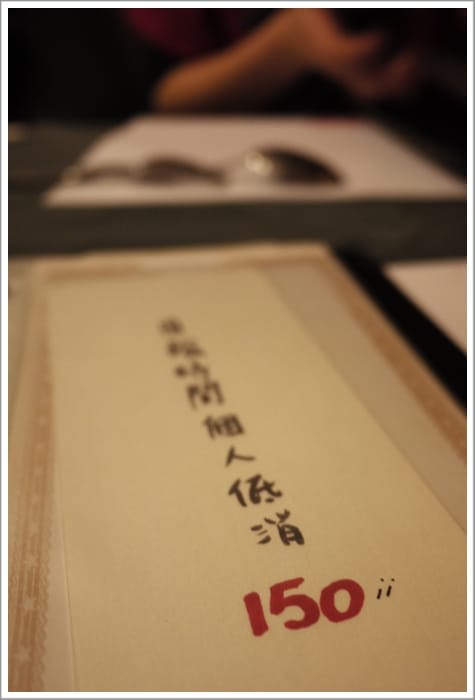 時間個人低消
150